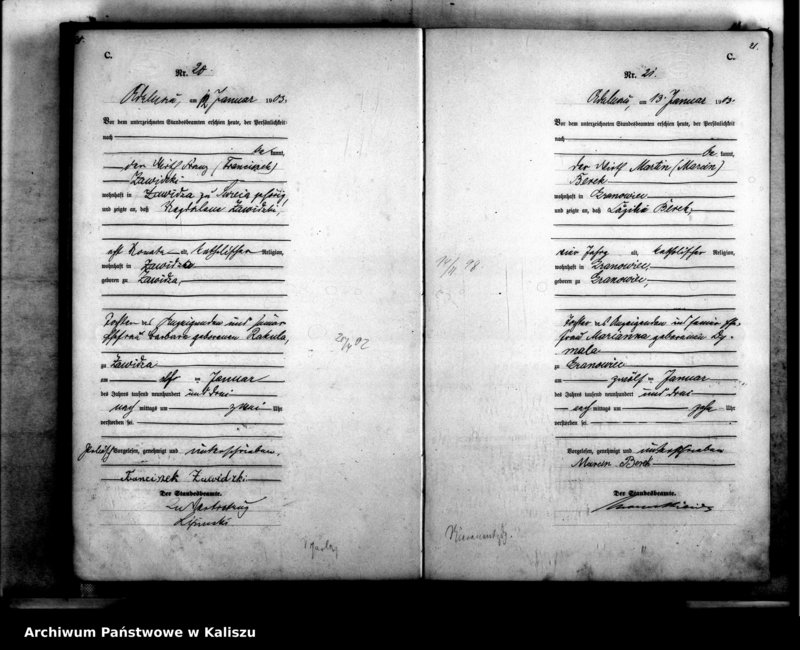 C.
Nr. 20
am 12 Januar 1903.
Vor dem unterzeichneten Standesbeamten erschien heute, der Persönlichkeit
nach
be kannt,
der Wirth Franz (Franciszek)
Zawidzki
wohnhaft in Zawidza zu
und zeigte an, daß Magdalena Zawidzki,
acht Monate alt, katholischer Religion,
wohnhaft in Zawidza
geboren zu Zawidza,
Tochter des Anzeigenden und seiner
Ehefrau Barbara geborenen Ratula,
zu Zawidza
am elf ten Januar
des Jahres tausend neunhundert und drei
nach mittags um zwei Uhr
verstorben sei.
Vorgelesen, genehmigt und unterschrieben.
Franciszek Zawidzki
Der Standesbeamte.
In Vertretung
Lipinski
20/4 02
21.
C.
Nr. 21.
am 13. Januar 1903.
Vor dem unterzeichneten Standesbeamten erschien heute, der Persönlichkeit
nach
be kannt,
der Wirth Martin (Marcin)
Berek
wohnhaft in Granowiec
und zeigte an, daß Berek,
vier Jahre alt, katholischer Religion,
wohnhaft in Granowiec,
geboren zu Granowiec,
Tochter des Anzeigenden und seiner Ehe-
frau Marianna geborenen Dy-
mala
zu Granowiec
am zwölf ten Januar
des Jahres tausend neunhundert und drei
mittags um Uhr
verstorben sei.
Vorgelesen, genehmigt und unterschrieben
Marcin Berek
Der Standesbeamte.
Archiwum Państwowe w Kaliszu